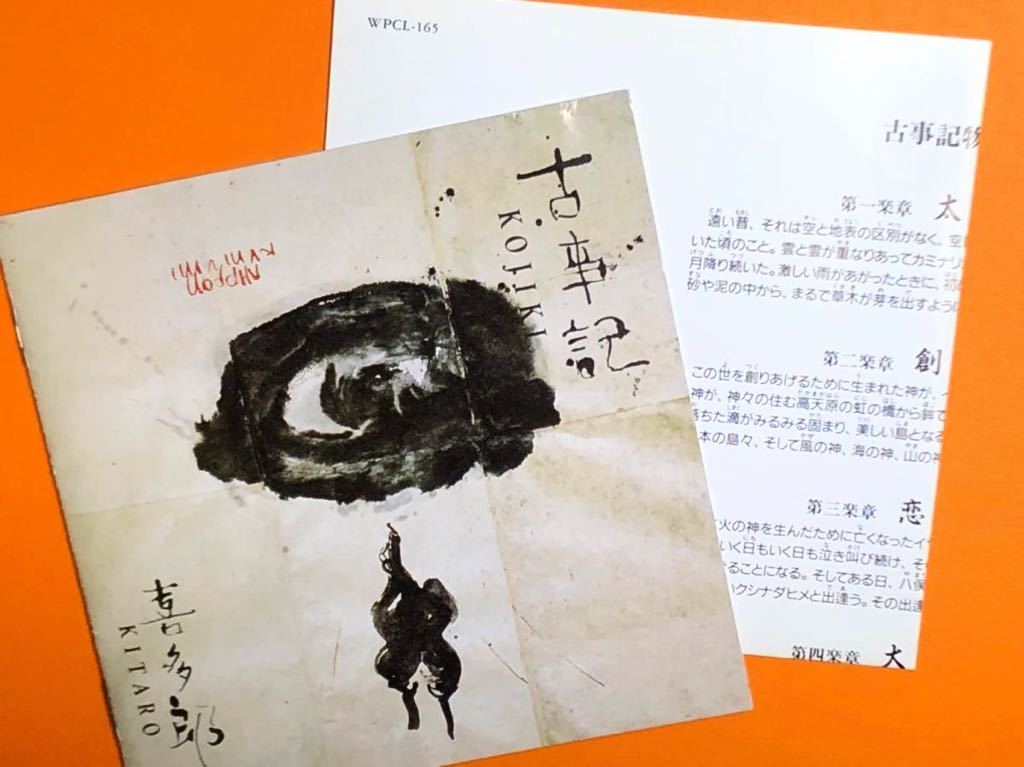 古事記
KOJIKI
NIPPON
喜多郎
KITARO
WPCL-165
古事記物
第一楽章 太
遠い昔、それは空と地表の区別がなく、空
いた頃のこと。雲と雲が重なりあってカミナリ
月降り続いた。激しい雨があがったときに、初
砂や泥の中から、まるで草木が芽を出すように
第二楽章 創
この世を創りあげるために生まれた神が、
神が、神々の住む高天原の虹の橋から鉾で
落ちた滴がみるみる固まり、美しい島となる
本の島々、そして風の神、海の神、山の神
第三楽章 恋
火の神を生んだために亡くなったイ
いく日もいく日も泣き叫び続け、そ
ることになる。そしてある日、八俣
クシナダヒメと出逢う。その出逢
第四楽章 太